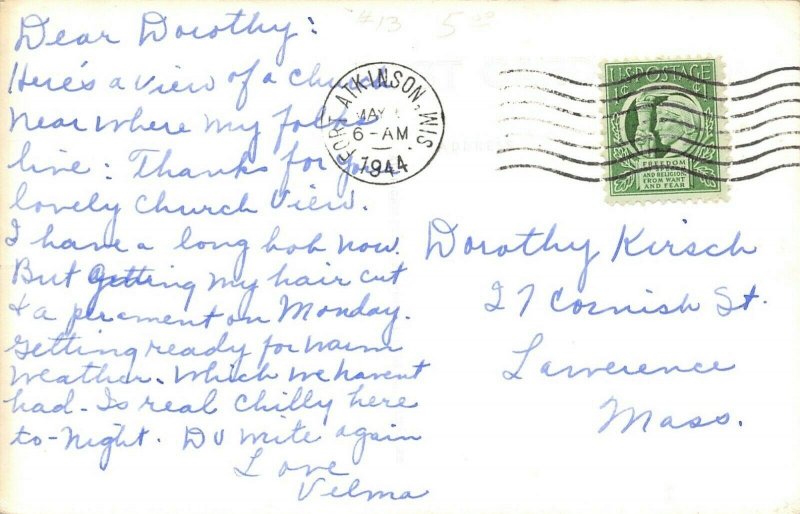 #13 5.00
Dear Dorothy:
Here's a view of a church
near where my folks
live: Thanks for your
lovely church view.
I have a long bob now.
But getting my hair cut
& a perement on Monday.
Getting ready for warm
weather. Which we havent
had - Is real chilly here
to-night. Do write again
Love
Velma
FORT ATKINSON, WIS.
MAY
6-AM
1944
U.S. POSTAGE
1¢ 1¢
FREEDOM
AND RELIGION,
FROM WANT
AND FEAR
Dorothy Kirsch
27 Cornish St.
Lawerence
Mass.